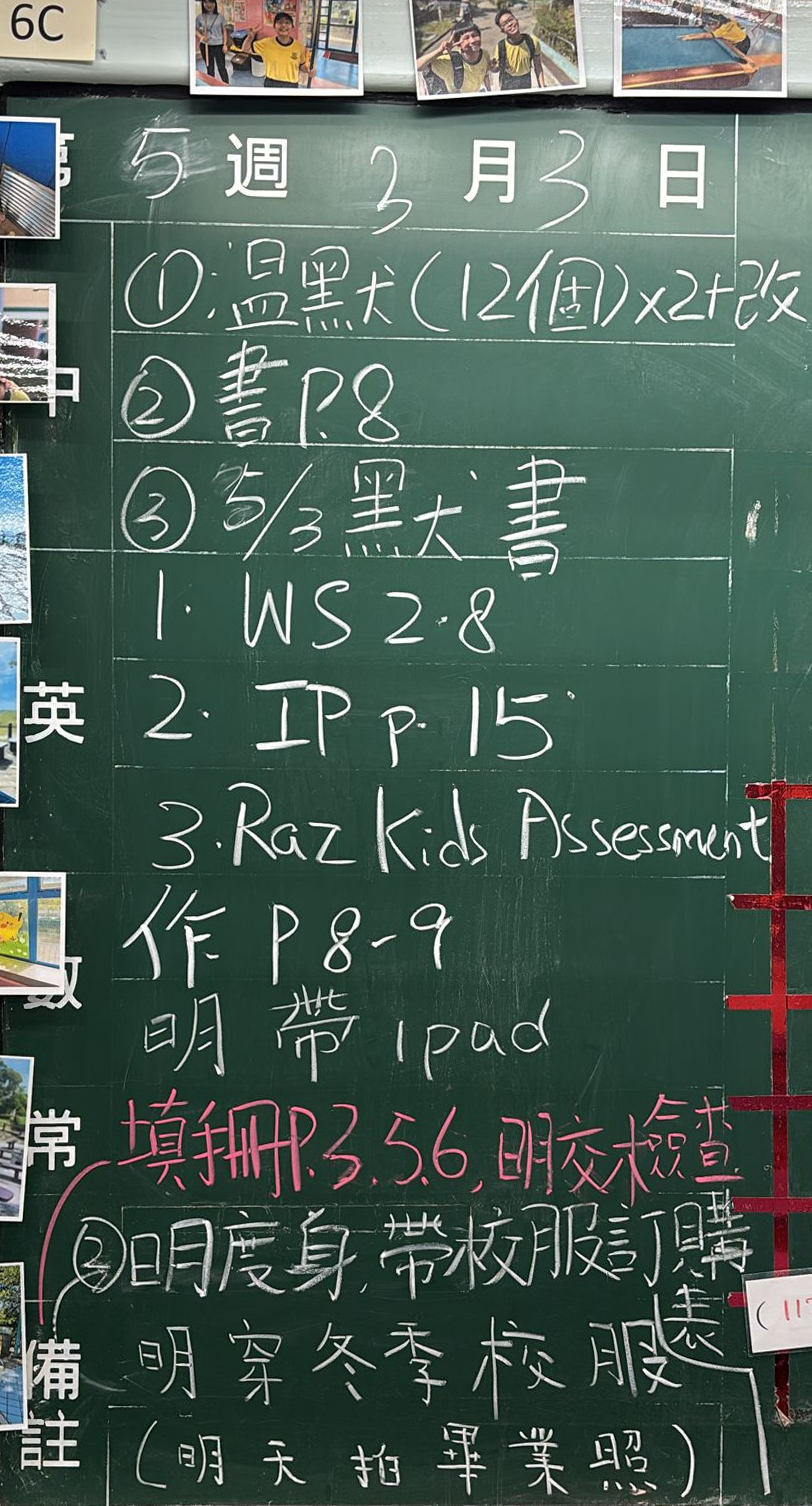 6C
第 5 週 3 月 3 日
中 ①:温默(12個)x2+改
② 書 P.8
③ 5/3 默書
1. WS 2.8
英 2. IP p. 15
3. Raz Kids Assessment
數 作 P 8-9
明 帶 ipad
常 填手冊P.3.5.6,明交檢查
②明度身,帶校服訂購表
備註 明 穿 冬 季 校 服
(明 天 拍 畢 業 照)
(117